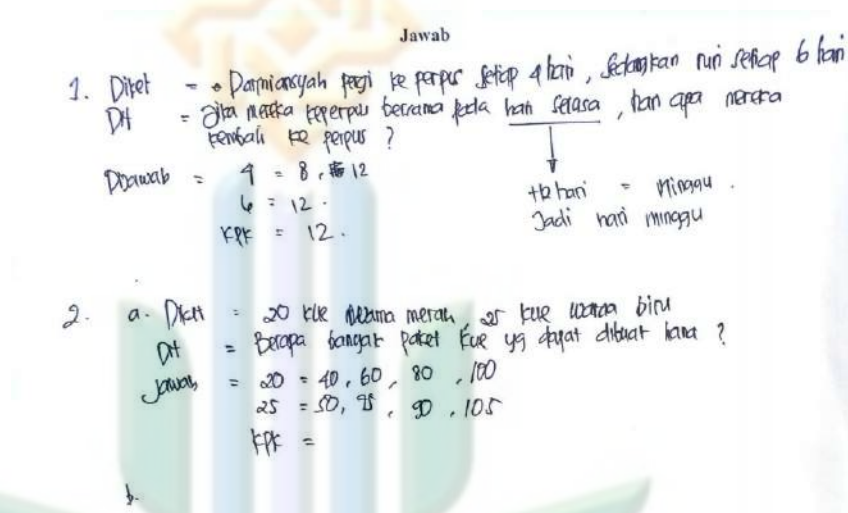 Jawab
1. Diket = • Darmiansyah pergi ke perpus setiap 4 hari, sedangkan ruri setiap 6 hari
Dit = Jika mereka keperpus bersama pada hari selasa, hari apa mereka
kembali ke perpus?
Dijawab = 4 = 8, 12
6 = 12.
KPK = 12.
+12 hari = Minggu.
Jadi hari minggu
2. a. Diket = 20 kue warna merah, 25 kue warna biru
Dit = Berapa banyak Paket kue yg dapat dibuat hana?
Jawab = 20 = 40, 60, 80, 100
25 = 50, 75, 90, 105
KPK =
b.